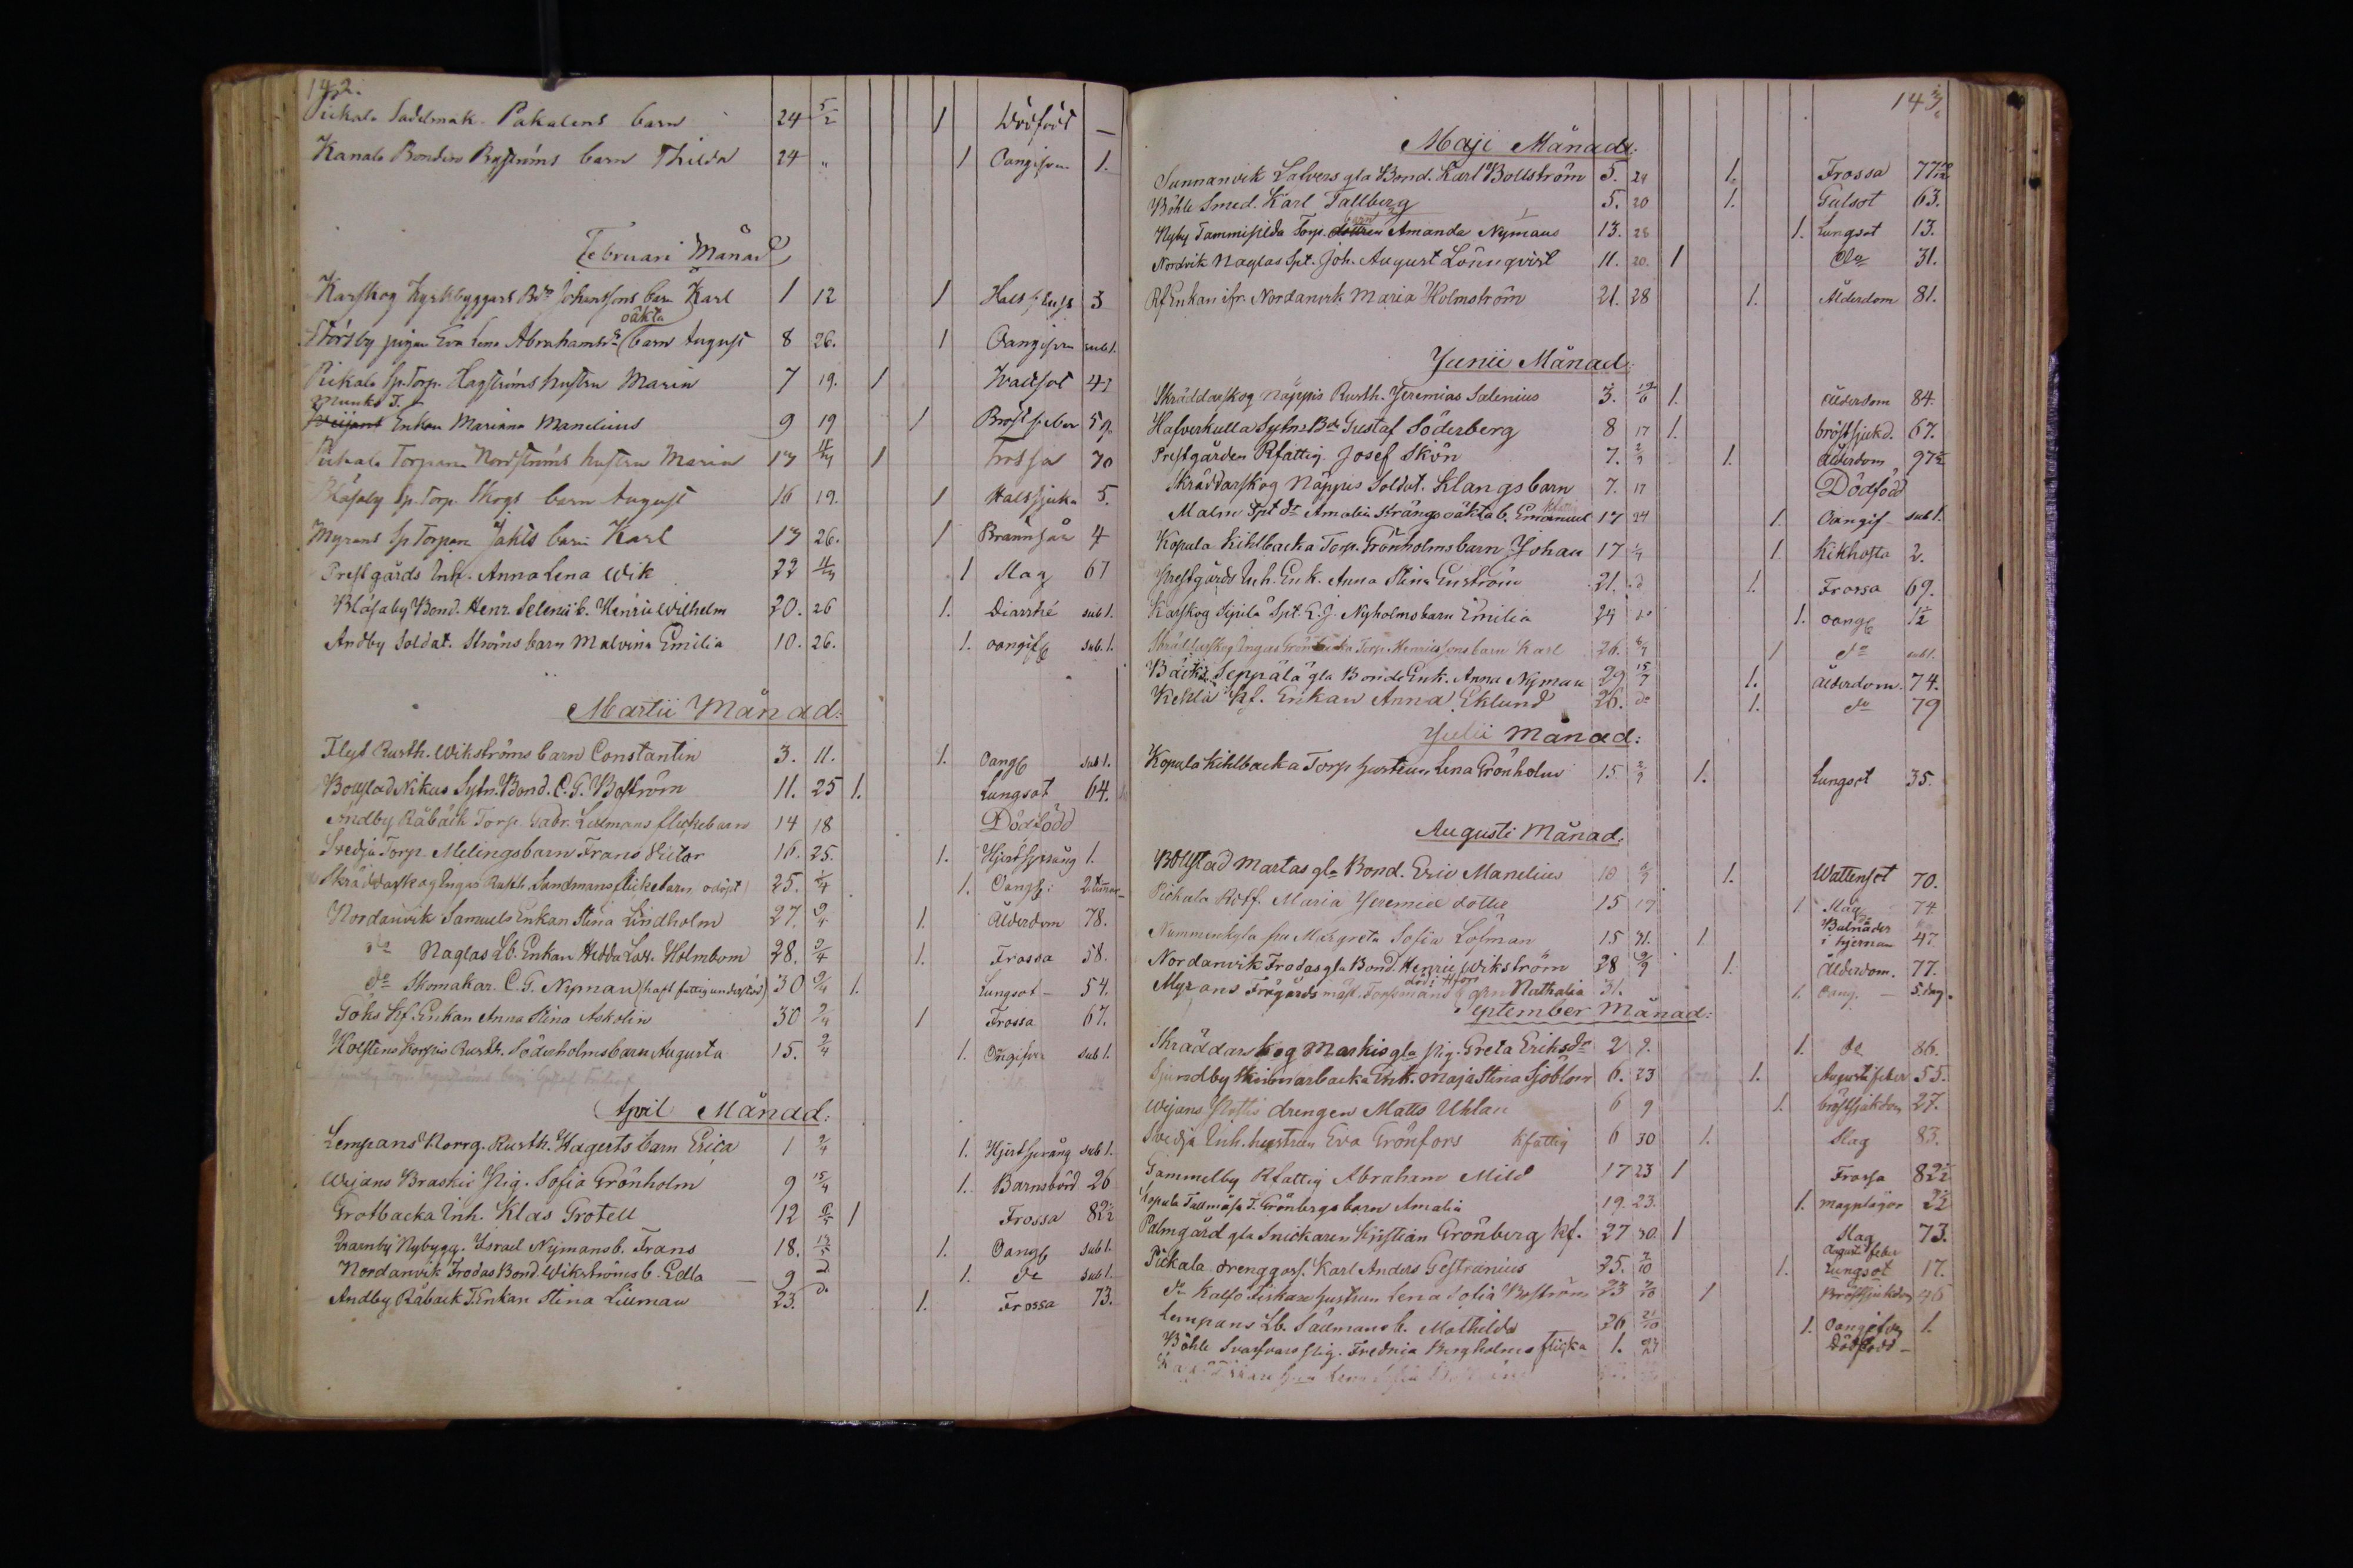 142.
Pickala Sadelmak. Pakalens barn 24 5/2 1 Dödföd —
Kanala Bonden Byströms barn Thilda 24 " 1 Oangifven 1.
Februari Månad
Karskog Kyrkbyggars Bdn Johanssons barn Karl 1 12 1 Hals 3
oäkta
Störsby pigan Eva Lena Abrahamsdr barn August 8 26. 1 Oangifven sub 1.
Pickala Sp. Torp. Hagströms hustru Maria 7 19. 1
Munks T.
Enkan Mariana Mandelius 9 19 1 Bröstfeber 59.
Pickala Torparen Nordströms hustru Maria 1 Frossa 70
Blåsaby Sp. Torp. Skogs barn August 16 19. 1 Halssjuka 5.
Myrans Sp Torparn Jakls barn Karl 26. 1 Brännsår 4
Prestgårds Inh. Anna Lena Wik 22 1 Slag 67
Blåsaby Bond. Henr. Selenii b. Henric Wilhelm 20. 26 1. Diarrhé sub 1.
Andby Soldat. Ströms barn Malvina Emilia 10. 26. 1. oangif sub. 1.
Martii Månad:
Flyt Rusth. Wikströms barn Constantin 3. 11. 1. Oang sub 1.
Bollstad Nikus Sytn. Bond. C. G. Boström 11. 25 1. Lungsot 64.
Andby Råbäck Torp. Gabr. Lillmans flickebarn 14 18 Dödfödd
Svedja Torp. Melings barn Frans Victor 16. 25. 1. Hjertsprång 1.
Skräddarskog Ingas Rusth. Sandmans flickebarn odöpt) 25. 1/4 1. Oangif: 2 timar
Nordanvik Samuels Enkan Stina Lindholm 27. 9/4 1. Ålderdom 78.
do Naglas Lb. Enkan Hedda Lov. Holmbom 28. 2/4 1. Frossa 58.
do Skomakar. C. G. Nyman (haft fattigunderstöd) 30 9/4 1. Lungsot — 54.
Göks Kf. Enkan Anna Stina Askolin 30 2/4 1 Frossa 67.
Holstens Korpis Rusth. Söderholms barn Augusta 15. 2/4 1. Oangifven sub 1.
April Månad:
Lempans Norrg. Rusth. Hagerts barn Erica 1 2/4 1. Hjertsprång sub 1.
Wejans Braskis Pig. Sofia Grönholm 9 15/4 1. Barnsbörd 26
Grotbacka Inh. Klas Grotell 12 1 Frossa 82½
Qvarnby Nybygg. Israel Nymans b. Frans 18. 1. Oang sub 1.
Nordanvik Frodas Bond. Wikströms b. Edla — 9 do 1. do sub 1.
Andby Råback T. Enkan Stina Lillman 23. do 1. Frossa 73.
143
Maji Månad:
Sunnanvik Lalvers gla Bond. Karl Bollström 5. 29 1. Frossa 77
Böhle Smed. Karl Tallberg 5. 20 1. Gulsot 63.
Nyby Tammisilda Torp. dottren barn Amanda Nymans 13. 28 1. Lungsot 13.
Nordvik Naglas Spt. Joh. August Lönnqvist 11. 20. 1 do 31.
Rf Enkan ifr. Nordanvik Maria Holmström 21. 28 1. Ålderdom 81.
Junii Månad:
Skräddarskog Näppis Rusth. Jeremias Salenius 3. 1. Ålderdom 84.
Hafverkulla Sytns Bdn Gustaf Söderberg 8 17 1. bröstsjukd. 67.
Prestgården Rfattig. Josef Skön 7. 2/7 1. Ålderdom 97½
Skräddarskog Näppis Soldat. Klangs barn 7. 17 Dödfödd
Malm Spt dr Amalia Strängs oäkta b. Emanuel 17 24 1. Oangif — sub 1.
Kopula Kihlbacka Torp. Grönholms barn Johan 17 1/7 1. Kikhosta 2.
Prestgårds Inh. Enk. Anna Stina Enström 21. do 1. Frossa 69.
Karskog Sipilä Spt. C. J. Nyholms barn Emilia 24 do 1. oang 1½
Skräddarskog Ingas Torp. Henrikssons barn Karl 26. 1 do sub 1.
Bäcks Seppälä gla Bonde Enk. Anna Nyman 29 15/7 1. Ålderdom. 74.
Kehla Kf. Enkan Anna Eklund 26. do 1. do 79
Julii Månad:
Kopula Kihlbacka Torp hustrun Lena Grönholm 15 2/9 1. Lungsot 35.
Augusti Månad:
Bollstad Martas gla Bond. Eric Manelius 10 1. Wattensot 70.
Pickala Rotf. Maria Jeremiæ dotter 15 17 1 Slag 74
Nummenkyla fru Margreta Sofia Löfman 15 31. 1 Bulnader i hjernan 47.
Nordanvik Frodas gla Bond. Henric Wikström 28 9/9 1. Ålderdom. 77.
död i Hfors
Myrans Trägårds mäst. Forssmans dtn Nathalia 31. 1. Oang. — 5 dag.
September Månad:
Skräddarskog Markis gla Pig. Greta Eriksdr 2 9. 1. do 86.
Sjundby Skinnarbacka Enk. Maja Stina Sjöblom 6. 23 1. Augustifeber 55.
Wejans drengen Matts Uhlan 6 9 1. bröstsjukdom 27.
Svedja Inh. hustrun Eva Grönfors Kfattig 6 30 1. Slag 83.
Gammelby Rfattig Abraham Mild 17 23 1 Frossa 82½
Kopula Tallmäsa T. Grönbergs barn Amalia 19. 23. 1. magplågor 2½
Palmgård gla Snickaren Kristian Grönberg kf. 27 30. 1 Slag 73.
Augusti feber
Pickala drenggoss. Karl Anders Gestranius 25. 7/10 1. Lungsot 17.
do Kalfö Fiskare hustrun Lena Sofia Boström 23 1 Bröstsjukdom 46
Lempans Lb. Sadmans b. Mathilda 26 21/10 1. Oangifven 1.
Böhle Svarfvars Pig. Fredrica Bergholms flicka 1. 23 Dödfödd —